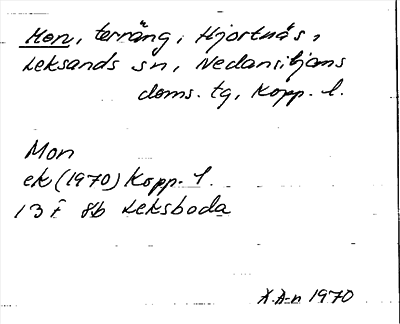 Mon, terräng, i Hjortnäs,
Leksands sn, Nedansiljans
doms. tg, Kopp. l.
Mon
ek (1970) Kopp. l.
13 F 8b Leksboda
1970